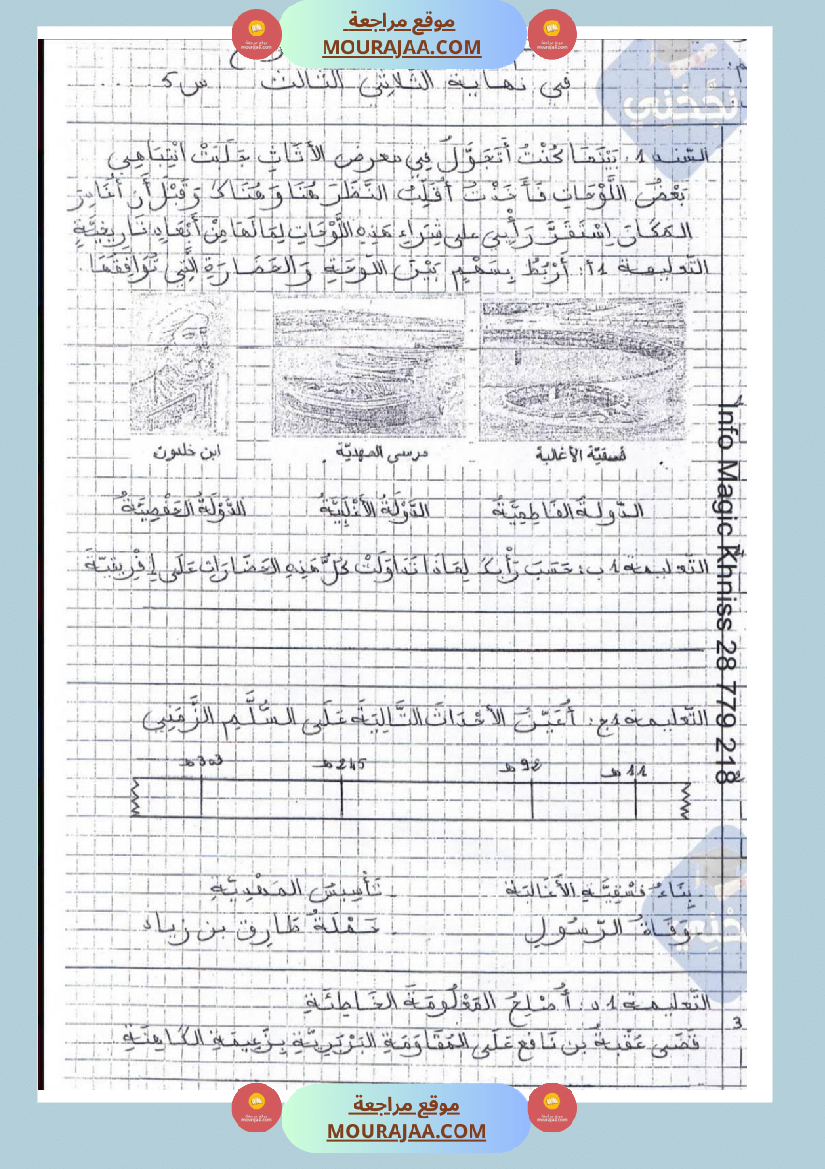 موقع مراجعة
MOURAJAA.COM
في نهاية الثلاثي الثالث س5
السند 1: بَيْنَمَا كُنْتُ أَتَجَوَّلُ فِي معرض الأَثَاثِ جَلَبَتْ انْتِبَاهِي
بَعْضُ اللَّوْحَاتِ فَأَخَذْتُ أُقَلِّبُ النَّظَرَ هُنَا وَهُنَاكَ وَقَبْلَ أَنْ أُغَادِرَ
المَكَانَ اِسْتَقَرَّ رَأْيِي على شِرَاءِ هَذِهِ اللَّوْحَاتِ لِمَا لَهَا مِنْ أَبْعَادٍ تَارِيخِيَّةٍ
التّعليمة 1أ: أَرْبُطُ بِسَهْمٍ بَيْنَ اللَّوْحَةِ وَالحَضَارَةِ الَّتِي تُوَافِقُهَا.
فسقيّة الأغالبة
مرسى المهديّة
ابن خلدون
الدّولةُ الفَاطِمِيَّةُ
الدَّوْلَةُ الأَغْلَبِيَّةُ
الدَّوْلَةُ الحَفْصِيَّةُ
التّعليمة 1ب: حَسَبَ رَأْيِكَ لِمَاذَا تَدَاوَلَتْ كُلُّ هَذِهِ الحَضَارَاتِ عَلَى إِفْرِيقِيَّةَ
التّعليمة 1ج: أُعَيِّنُ الأَحْدَاثَ التَّالِيَةَ عَلَى السُّلَّمِ الزَّمَنِي
11 هـ
92 هـ
245 هـ
303 هـ
- بِنَاءُ فَسْقِيَّةِ الأَغَالِبَة
- تَأْسِيسُ المَهْدِيَّةِ
- وَفَاةُ الرّسُولِ
- حَمْلَةُ طَارِق بن زياد
التّعليمة 1د: أُصْلِحُ المَعْلُومَةَ الخَاطِئَةِ
قَضَى عُقْبَةُ بن نَافع عَلَى المُقَاوَمَةِ البَرْبَرِيَّةِ بِزَعِيمَةِ الكَاهِنَةِ
3
Info Magic Khniss 28 779 218
نجّحني
موقع مراجعة
MOURAJAA.COM